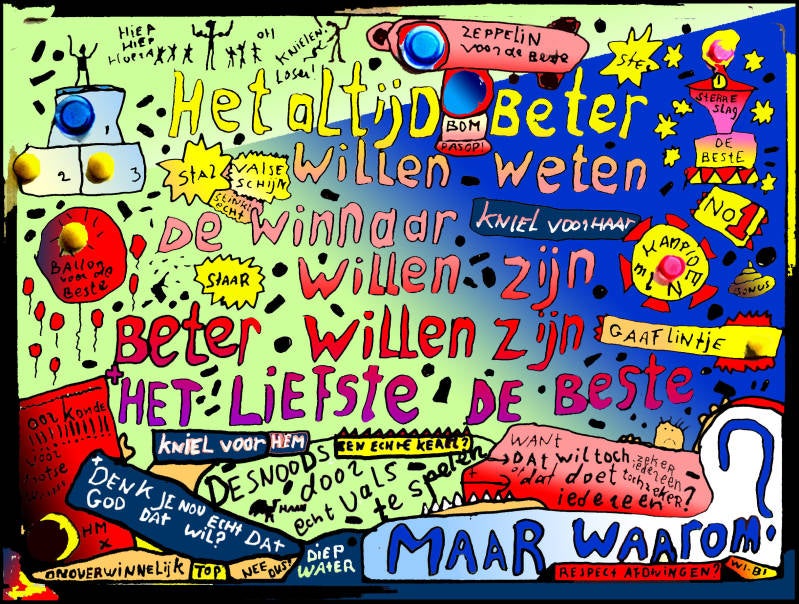 HIEP
HIEP
HOERA
OH
KNIELEN
LOSER!
ZEPPELIN
VOOR DE BESTE
STER
Het altijd Beter
BOM
PAS OP!
1
2
3
STERRE
SLAG
DE
BESTE
willen weten
STAR
VALSE
SCHIJN
De winnaar
KNIEL VOOR HAAR
NO 1
BALLON
VOOR DE
BESTE
STAAR
willen zijn
KAMPIOEN
BONUS
Beter willen zijn
GAAF LINTJE
+ HET LIEFSTE DE BESTE
OORKONDE
VOOR
TROTSE
HM
X
KNIEL VOOR HEM
EEN ECHTE KEREL?
WANT
DAT WIL TOCH ZEKER
IEDEREEN
of dat doet toch zeker
iedereen?
DESNOODS
door
echt VALS
te spelen
HAAR
+ DENK JE NOU ECHT DAT
GOD DAT WIL?
?
MAAR WAAROM?
DIEP
WATER
ONOVERWINNELIJK
TOP
NEE DUS!
RESPECT AFDWINGEN?